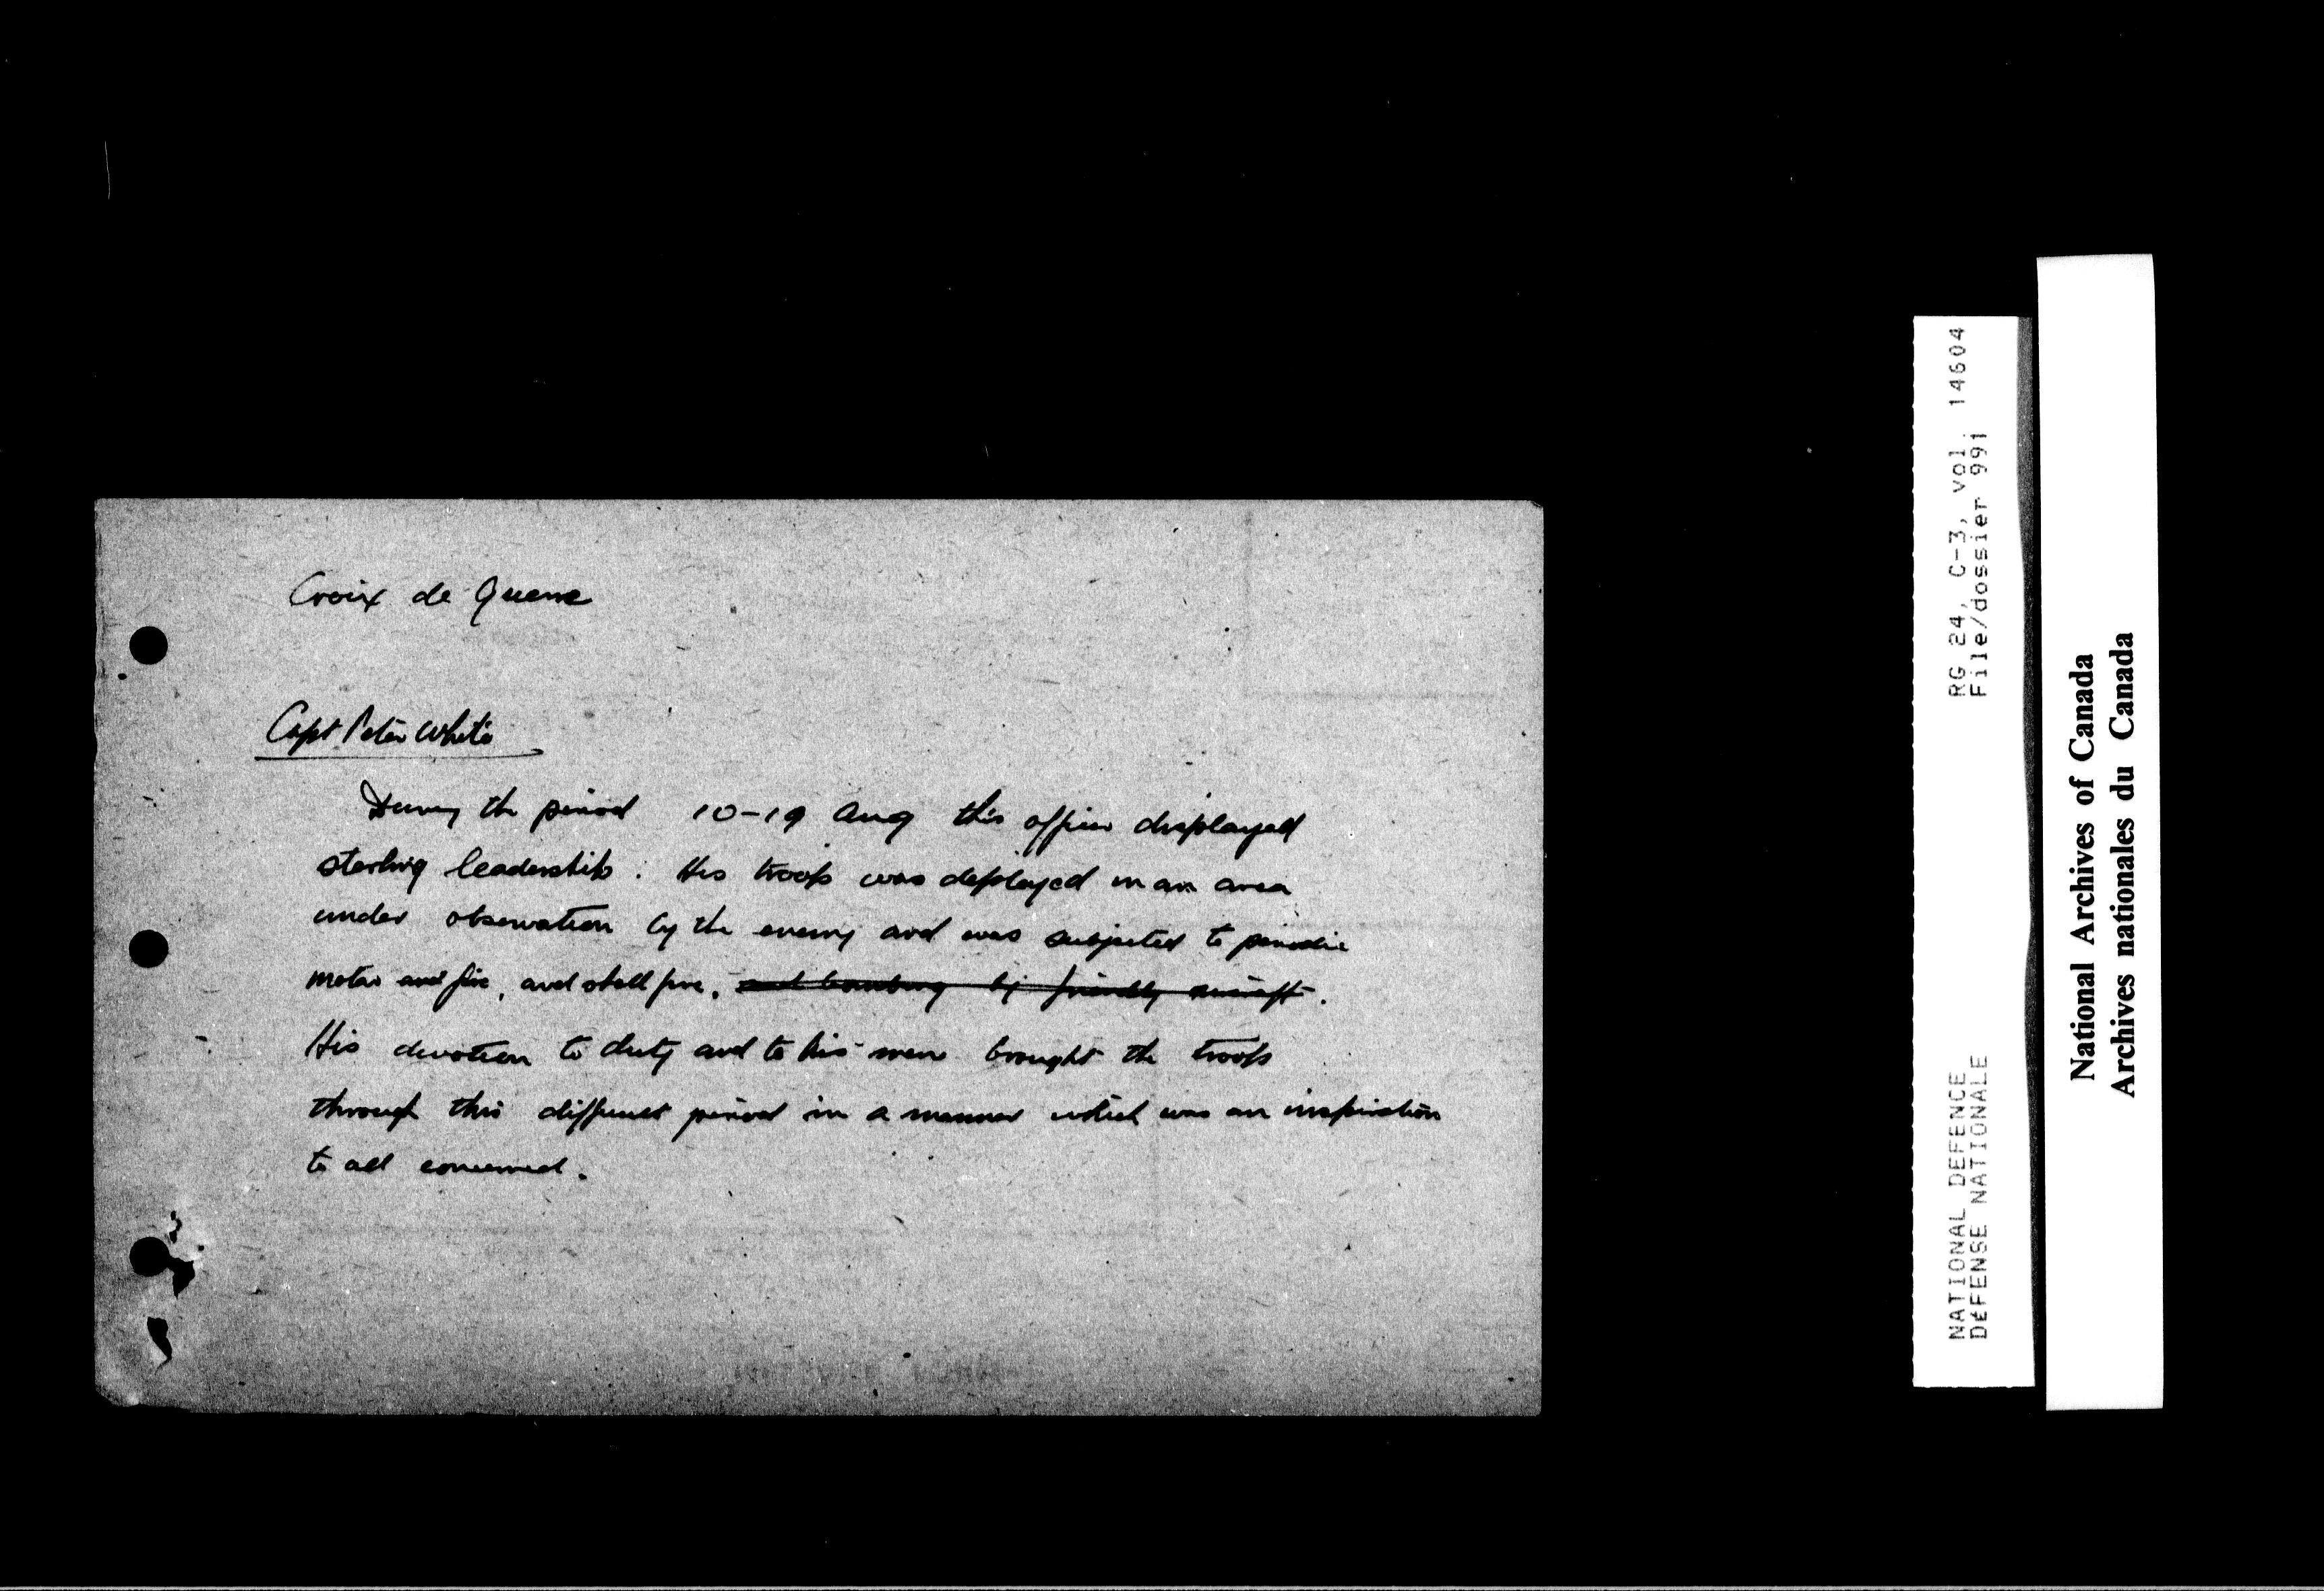 Croix de Guerre
Capt Peter White
During the period 10-19 Aug this officer displayed
sterling leadership. His troop was deployed in an area
under observation by the enemy and was subjected to periodic
motar and fire, and shell fire, and bombing by friendly aircraft.
His devotion to duty and to his men brought the troop
through this difficult period in a manner which was an inspiration
to all concerned.
RG 24, C-3, vol. 14604
File/dossier 991
NATIONAL DEFENCE
DÉFENSE NATIONALE
National Archives of Canada
Archives nationales du Canada